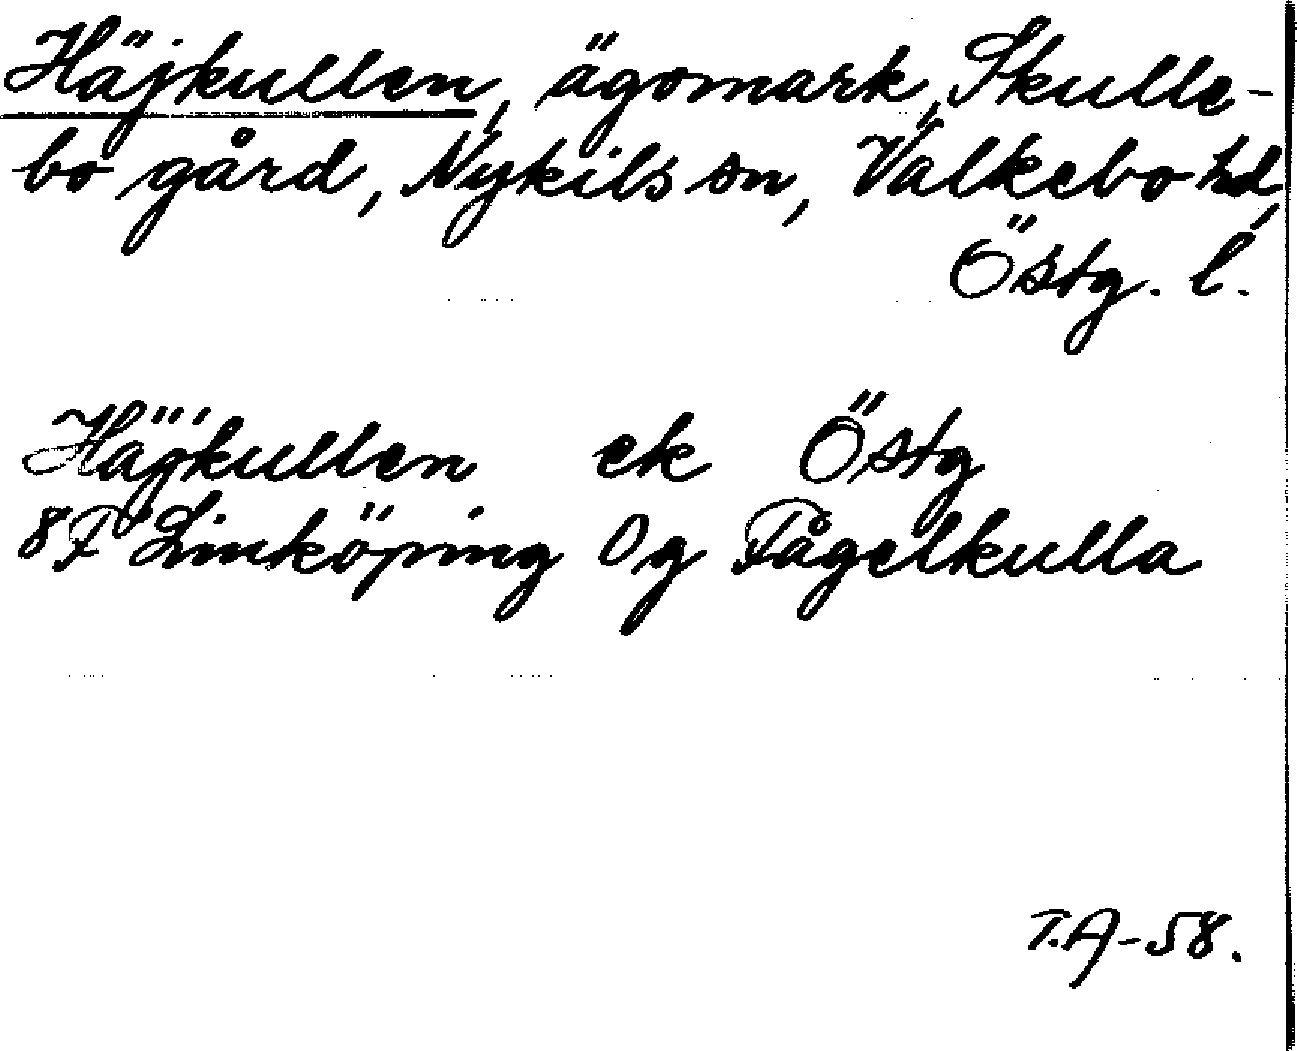 Häjkullen, ägomark, Skulle-
bo gård, Nykils sn, Valkebo hd,
Östg. l.
Häjkullen ek Östg
8F Linköping 0g Fågelkulla
T.A-58.